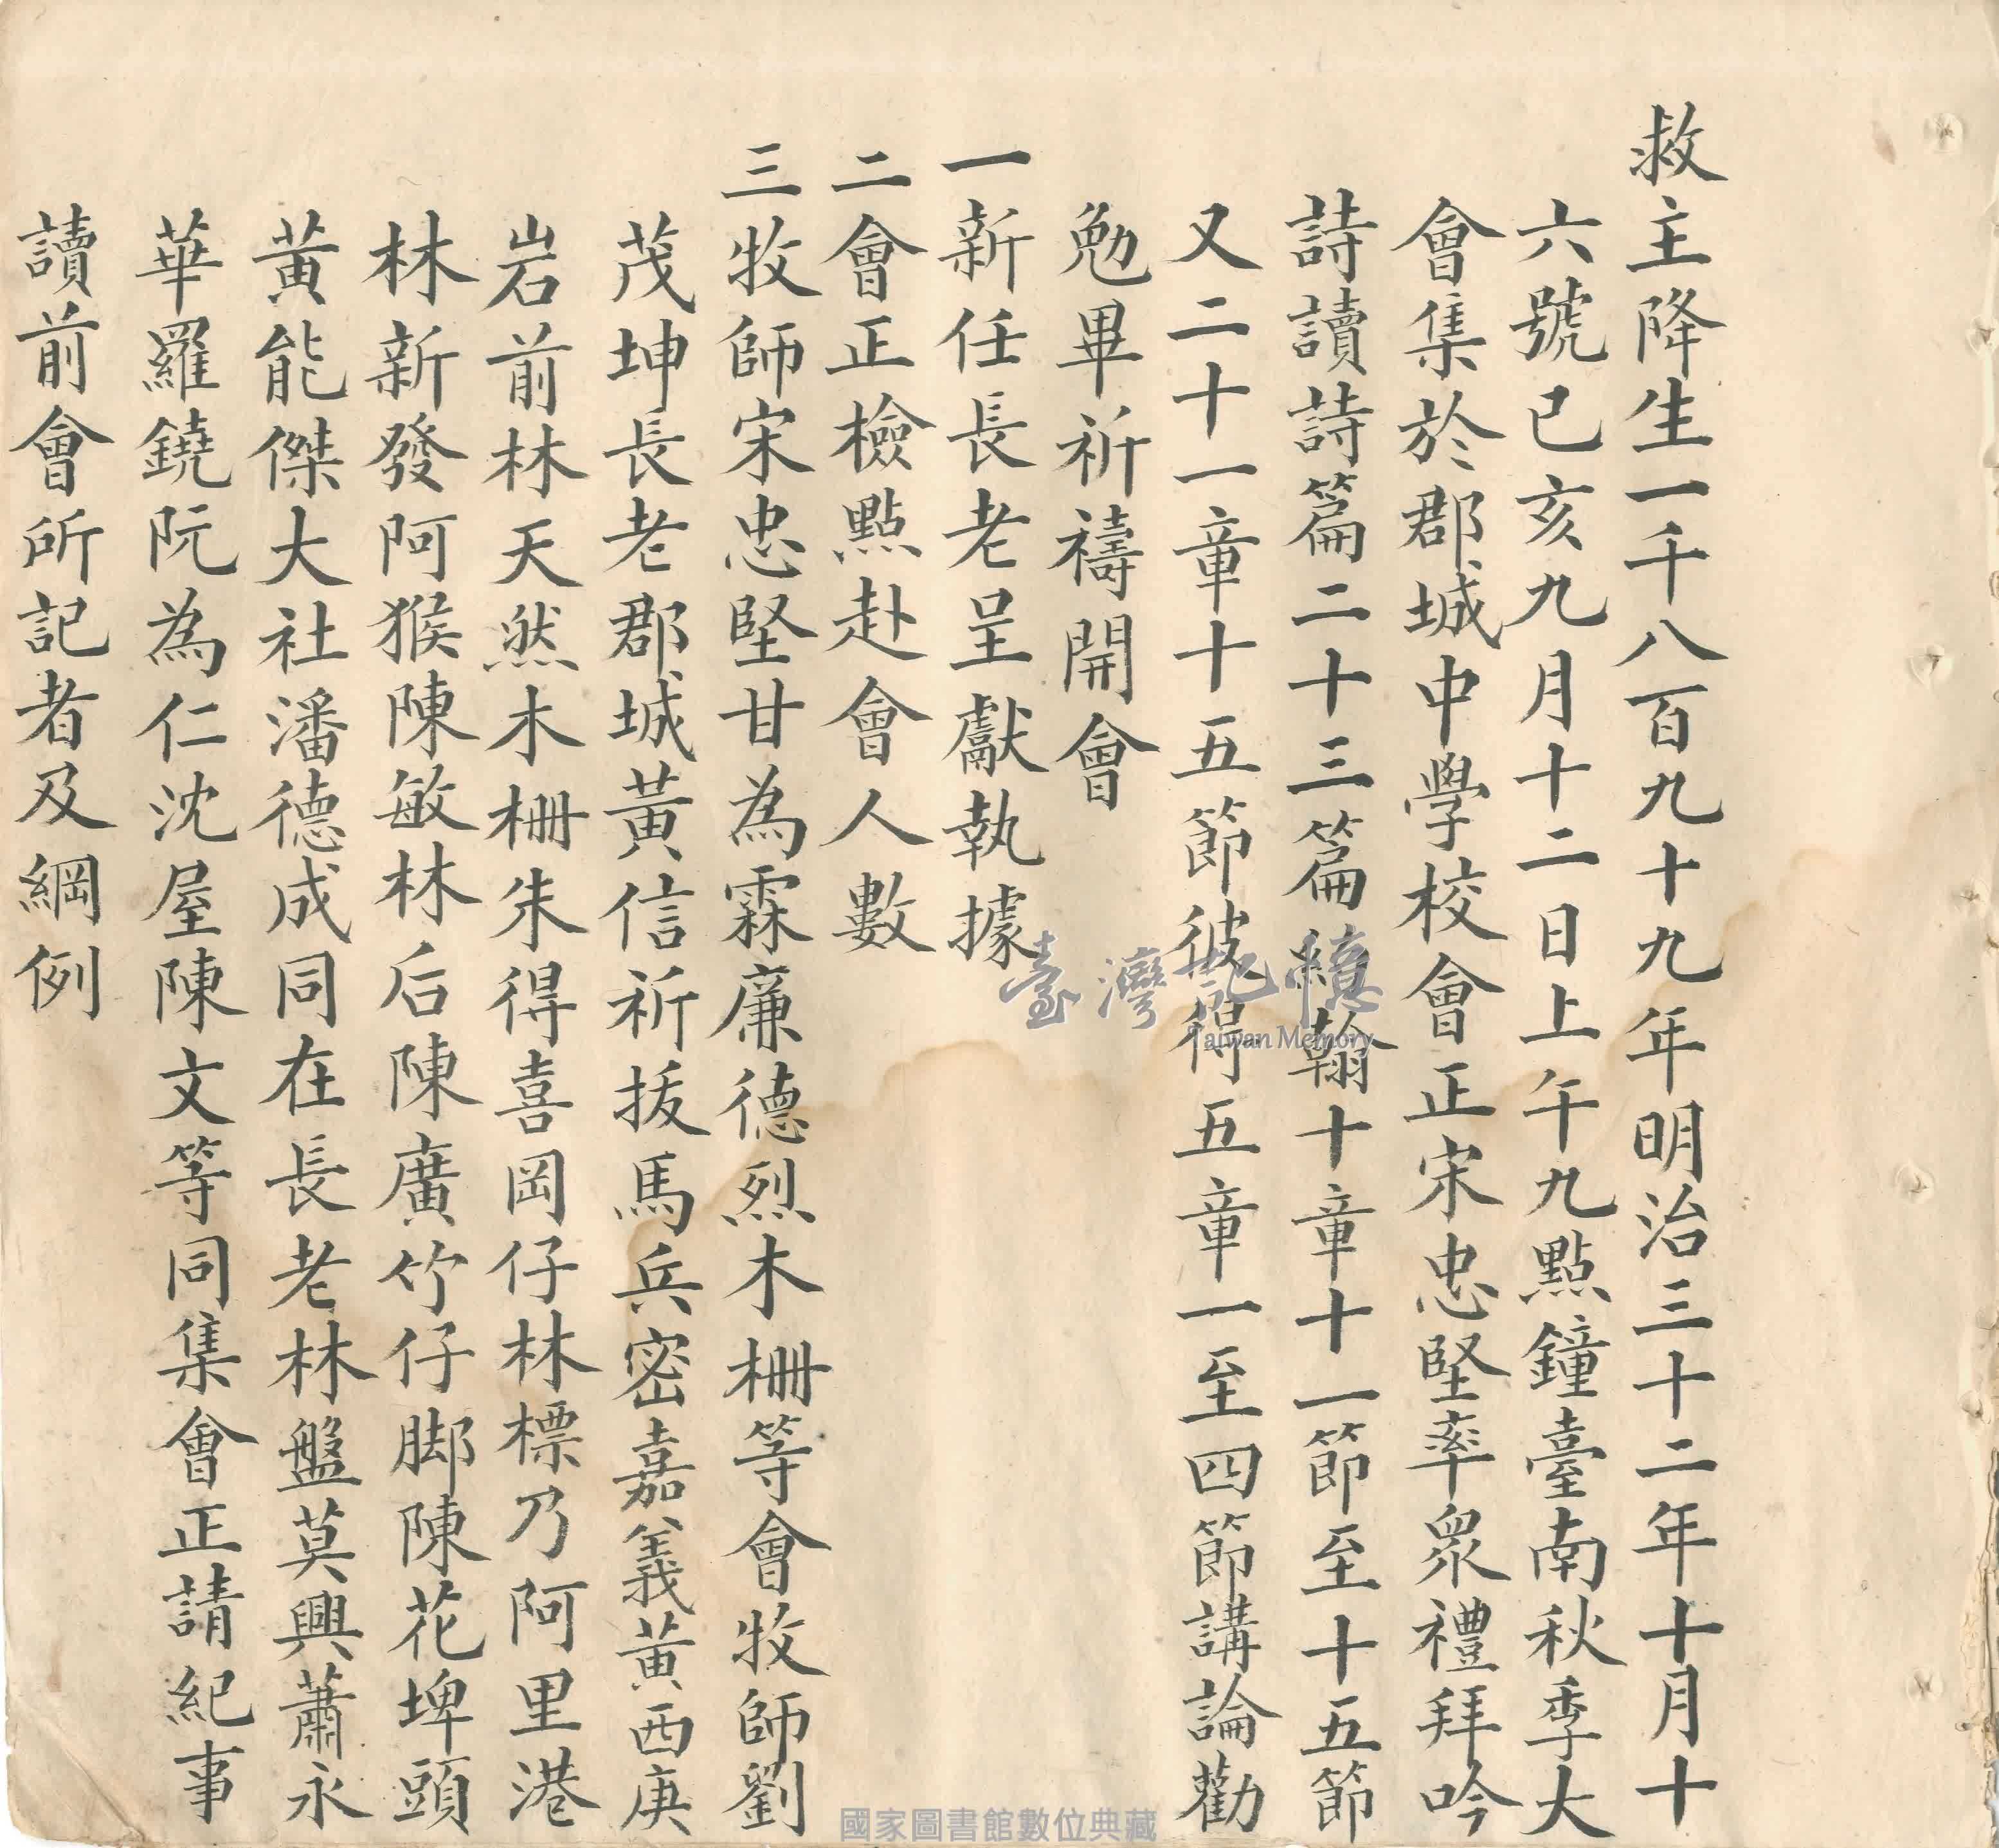 救主降生一千八百九十九年明治三十二年十月十
六號己亥九月十二日上午九點鐘臺南秋季大
會集於郡城中學校會正宋忠堅率眾禮拜吟
詩讀詩篇二十三篇約翰十章十一節至十五節
又二十一章十五節彼得五章一至四節講論勸
勉畢祈禱開會
一新任長老呈獻執據
二會正檢點赴會人數
三牧師宋忠堅甘為霖廉德烈木柵等會牧師劉
茂坤長老郡城黃信祈拔馬兵密嘉義黃西庚
岩前林天然木柵朱得喜岡仔林標乃阿里港
林新發阿猴陳敏林后陳廣竹仔脚陳花埤頭
黃能傑大社潘德成同在長老林盤莫興蕭永
華羅鐃阮為仁沈屋陳文等同集會正請紀事
讀前會所記者及綱例
臺灣記憶
Taiwan Memory
國家圖書館數位典藏